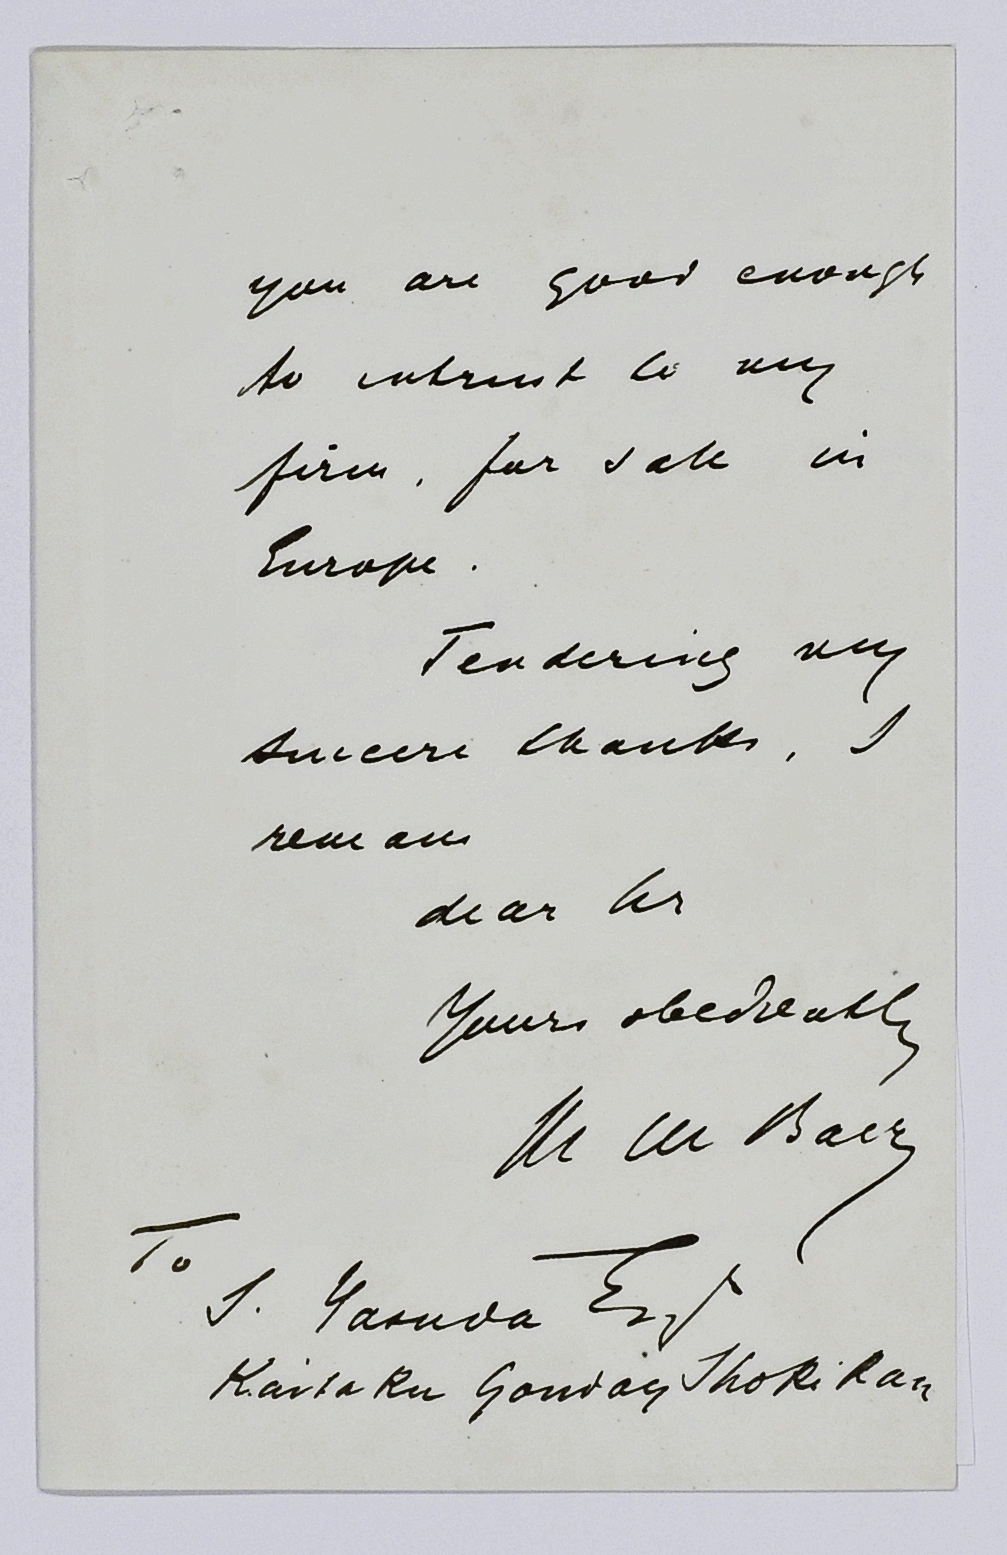 you are good enough
to intrust to my
firm, for sale in
Europe.
Tendering my
sincere thanks, I
remain
dear Sir
Yours obediently
M M Baer
To
S. Yasuda Esq
Kaitaku Gondaij Shokikan